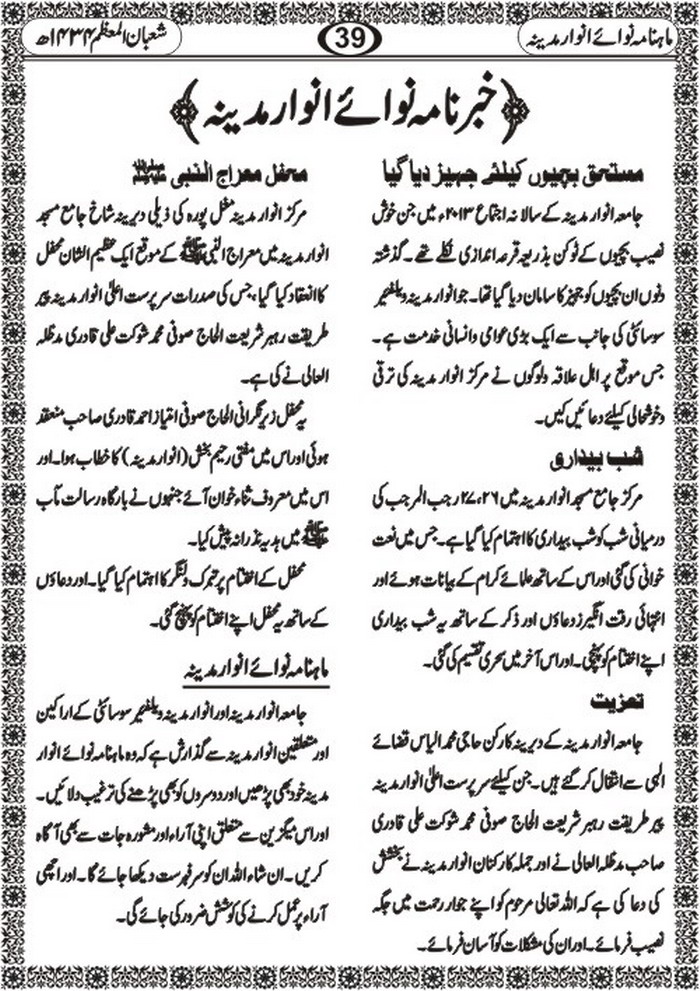 ماہنامہ نوائے انوار مدینہ
39
شعبان المعظم ۱۴۳۴ھ
خبرنامہ نوائے انوار مدینہ
مستحق بچیوں کیلئے جہیز دیا گیا
جامعہ انوار مدینہ کے سالانہ اجتماع ۲۰۱۳ء میں جن خوش
نصیب بچیوں کے ٹوکن بذریعہ قرعہ اندازی نکلے تھے۔ گذشتہ
دنوں ان بچیوں کو جہیز کا سامان دیا گیا تھا۔ جو انوار مدینہ ویلفیر
سوسائٹی کی جانب سے ایک بڑی عوامی وانسانی خدمت ہے۔
جس موقع پر اہل علاقہ ولوگوں نے مرکز انوار مدینہ کی ترقی
وخوشحالی کیلئے دعائیں کیں۔
شب بیداری
مرکز جامع مسجد انوار مدینہ میں ۲۷،۲۶ رجب المرجب کی
درمیانی شب کو شب بیداری کا اہتمام کیا گیا ہے۔ جس میں نعت
خوانی کی گئی اور اس کے ساتھ علمائے کرام کے بیانات ہوئے اور
انتہائی رقت انگیز زدعاؤں اور ذکر کے ساتھ یہ شب بیداری
اپنے اختتام کو پہنچی۔ اور اس آخر میں سحری تقسیم کی گئی۔
تعزیت
جامعہ انوار مدینہ کے دیرینہ کارکن حاجی محمد الیاس قضائے
الہی سے انتقال کر گئے ہیں۔ جن کیلئے سرپرست اعلیٰ انوار مدینہ
پیر طریقت رہبر شریعت الحاج صوفی محمد شوکت علی قادری
صاحب مدظلہ العالی نے اور جملہ کارکنان انوار مدینہ نے بخشش
کی دعا کی ہے کہ اللہ تعالی مرحوم کو اپنے جوار رحمت میں جگہ
نصیب فرمائے۔ اور ان کی مشکلات کو آسان فرمائے۔
محفل معراج النبی ﷺ
مرکز انوار مدینہ مغل پورہ کی ذیلی دیرینہ شاخ جامع مسجد
انوار مدینہ میں معراج النبی ﷺ کے موقع ایک عظیم الشان محفل
کا انعقاد کیا گیا، جس کی صدرات سرپرست اعلیٰ انوار مدینہ پیر
طریقت رہبر شریعت الحاج صوفی محمد شوکت علی قادری مدظلہ
العالی نے کی ہے۔
یہ محفل زیر نگرانی الحاج صوفی امتیاز احمد قادری صاحب منعقد
ہوئی اور اس میں مفتی رحیم بخش (انوار مدینہ) کا خطاب ہوا۔ اور
اس میں معروف ثناء خوان آئے جنہوں نے بارگاہ رسالت مآب
ﷺ میں ہدیہ نذرانہ پیش کیا۔
محفل کے اختتام پر تبرک ولنگر کا اہتمام کیا گیا۔ اور دعاؤں
کے ساتھ یہ محفل اپنے اختتام کو پہنچ گئی۔
ماہنامہ نوائے انوار مدینہ
جامعہ انوار مدینہ اور انوار مدینہ ویلفیر سوسائٹی کے اراکین
اور متعلقین انوار مدینہ سے گذارش ہے کہ وہ ماہنامہ نوائے انوار
مدینہ خود بھی پڑھیں اور دوسروں کو بھی پڑھنے کی ترغیب دلائیں۔
اور اس میگزین سے متعلق اپنی آراء اور مشورہ جات سے بھی آگاہ
کریں۔ ان شاء اللہ ان کو سر فہرست دیکھا جائے گا۔ اور اچھی
آراء پر عمل کرنے کی کوشش ضرور کی جائے گی۔